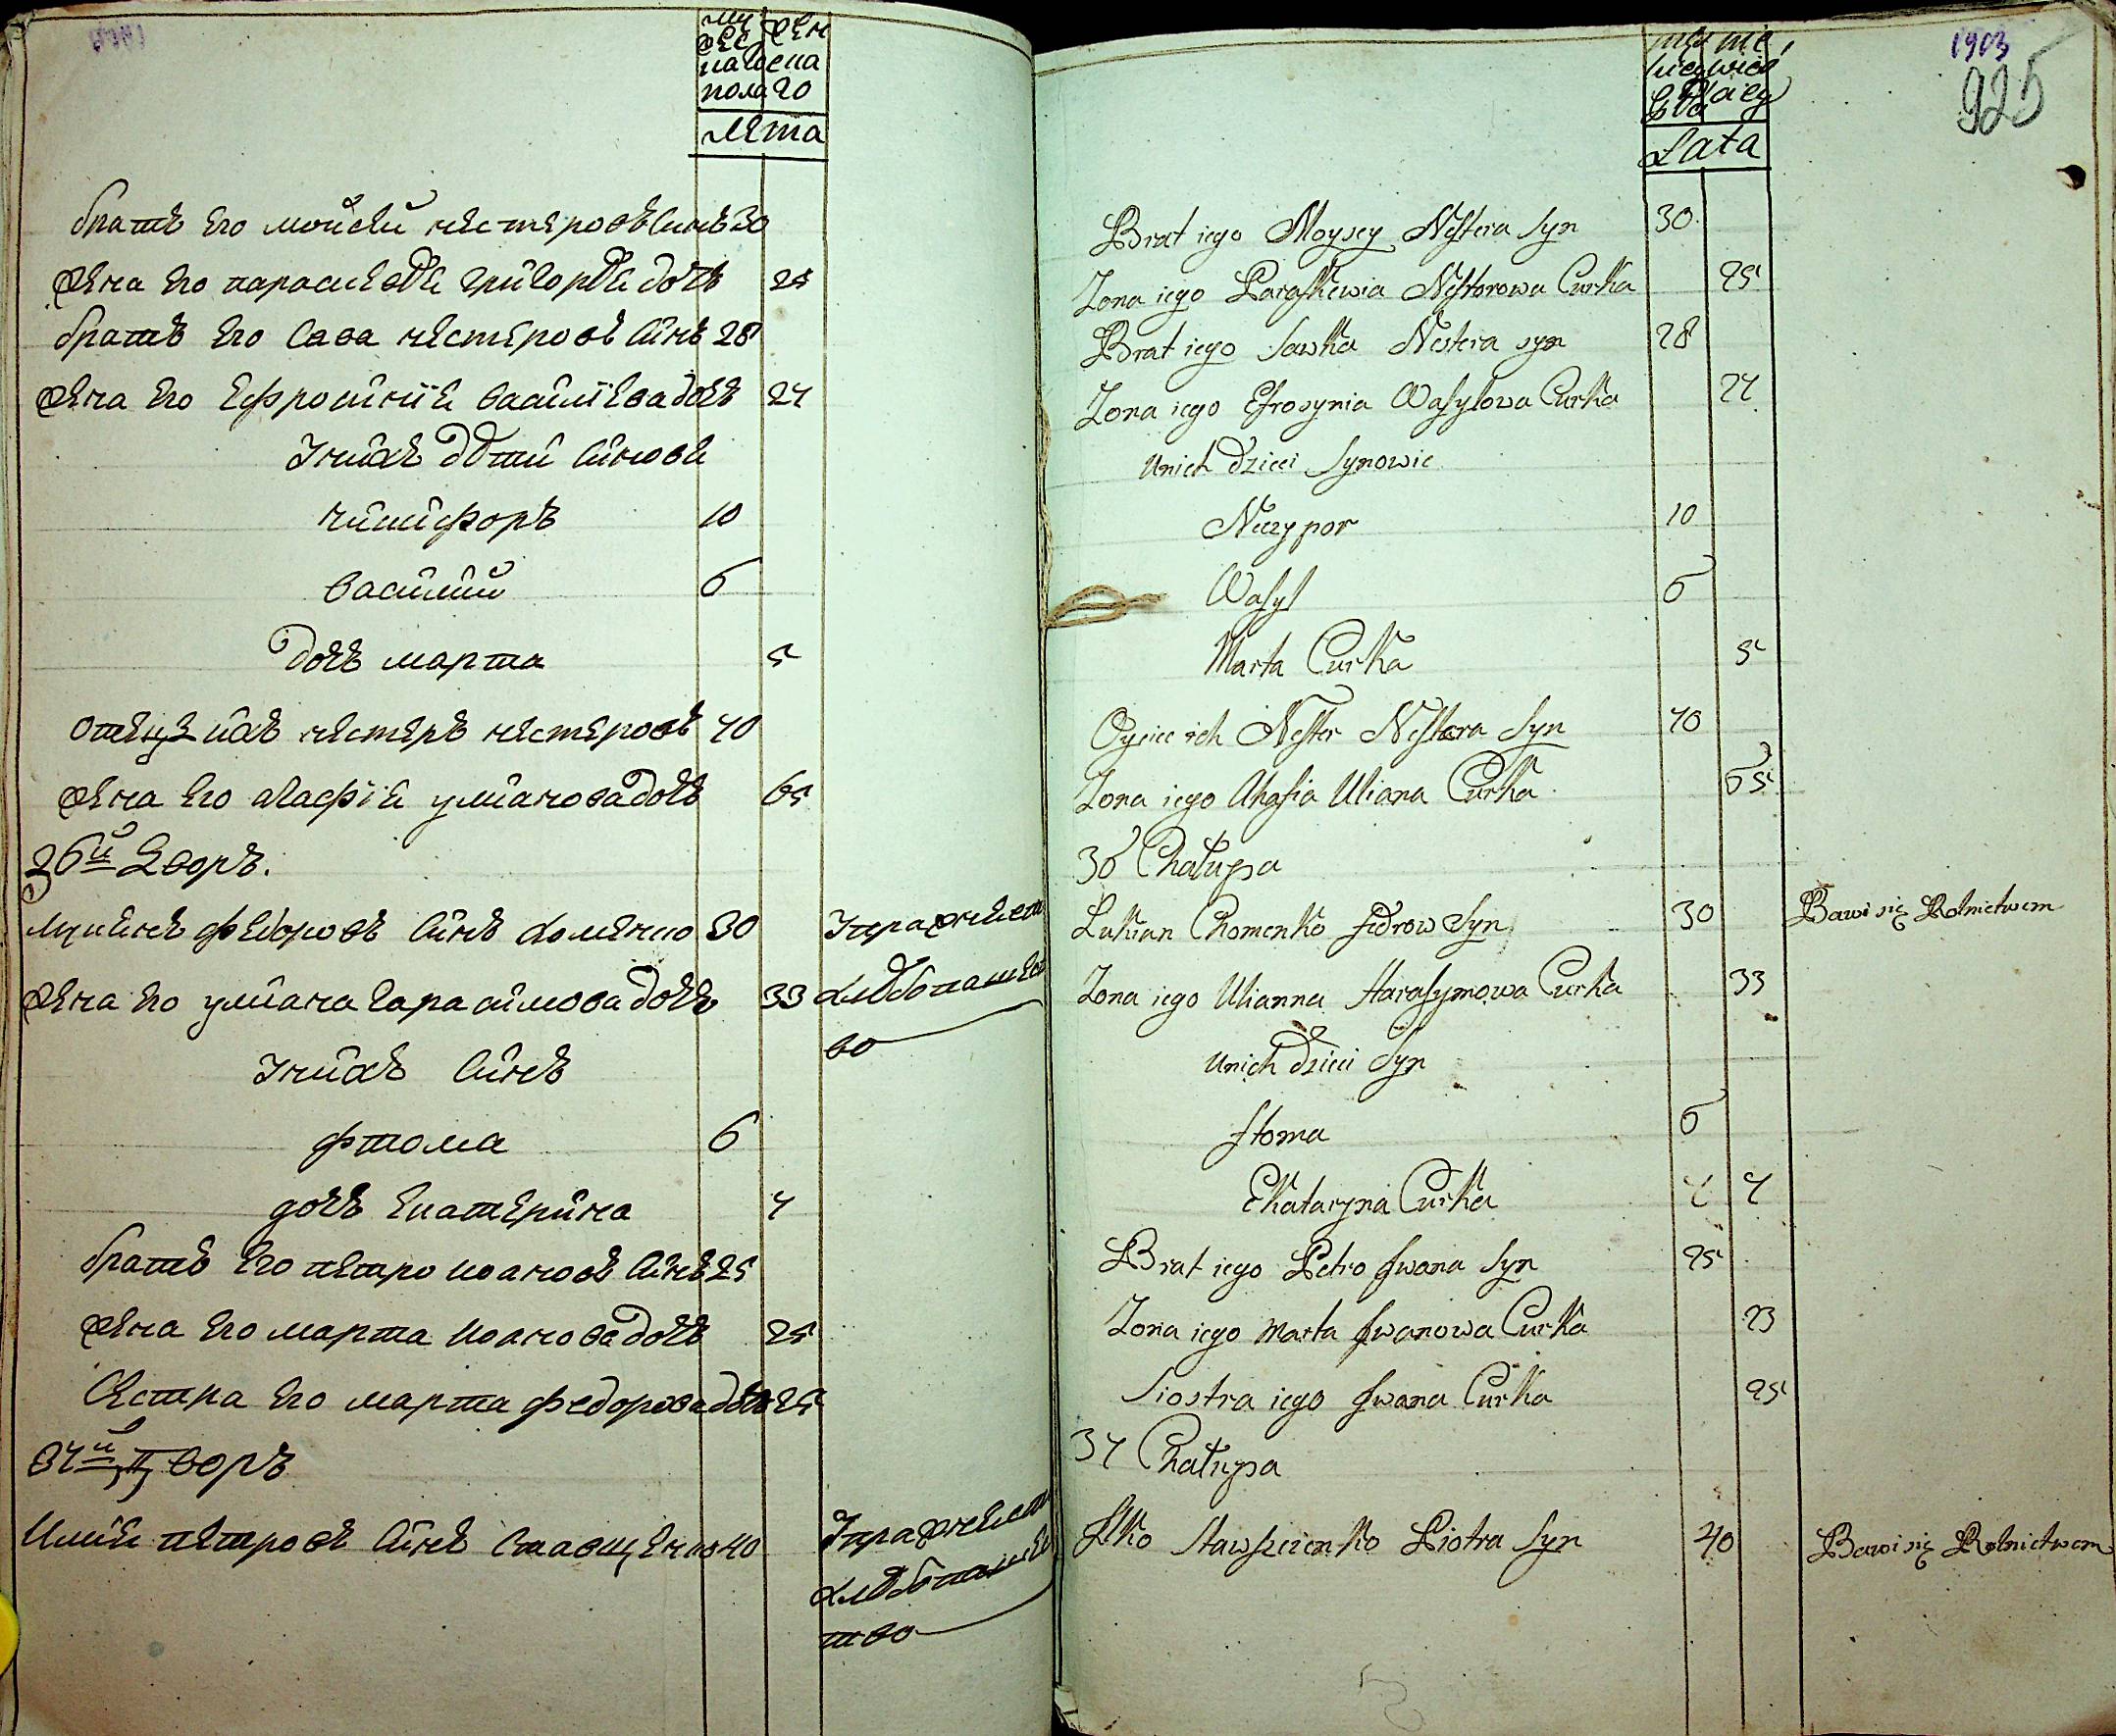 му жен
жес
на ска
пола го
лета
братъ его мойсей нестеровъ синъ 30
жена его параскевѣя григорѣя дочъ 25
братъ его Сава нестеровъ синъ 28
жена его Ефросинїя василїева дочъ 24
Унихъ дѣти синове
никифоръ 10
василий 6
дочъ марта 5
отецъ ихъ нестеръ нестеровъ 70
жена его агафїя улианова дочъ 65
36й Дворъ.
лукянъ федоровъ синъ хоменко 30 Упражняет
жена его улиана гарасимова дочъ 33 хлѣбопашес
во
Унихъ синъ
фтома 6
дочъ Екатерина 4
братъ его петро иоановъ синъ 25
жена его марта иоанова дочъ 25
Сестра его марта федорова дочъ 25
37й Дворъ
Илия петровъ синъ Ставщенко 40 Упражняет
хлѣбопашес
тво
1903
925
Lata
Brat iego Moysey Nestera Syn 30
Zona iego Paraskewia Nestorowa Curka 25
Brat iego Sawka Nestera syn 28
Zona iego Efrosynia Wasylowa Curka 24
Unich dzieci Synowie
Niczypor 10
Wasyl 6
Marta Curka 5
Oyciec ich Nester Nestera Syn 70
Zona iego Ahafia Uliana Curka 65
36 Chałupa
Łukian Chomenko Fedrow Syn 30 Bawi się Rolnictwem
Zona iego Ulianna Harasymowa Curka 33
Unich dzieci Syn
Ftoma 6
Ekataryna Curka 4 4
Brat iego Petro Iwana Syn 25
Zona iego Marta Iwanowa Curka 23
Siostra iego Iwana Curka 25
37 Chałupa
Ilko Stawszczenko Piotra Syn 40 Bawi się Rolnictwem